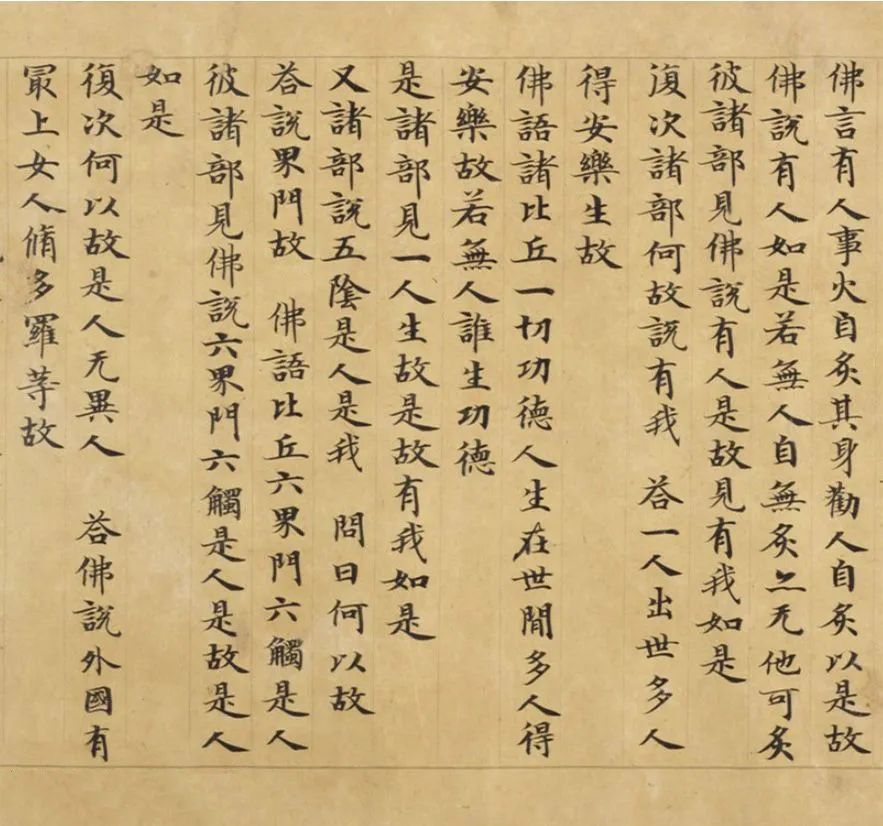 佛言有人事火自炙其身勸人自炙以是故
佛說有人如是若無人自無炙亦无他可炙
彼諸部見佛說有人是故見有我如是
復次諸部何故說有我　荅一人出世多人
得安樂生故
佛語諸比丘一切功德人生在世間多人得
安樂故若無人誰生功德
是諸部見一人生故是故有我如是
又諸部說五陰是人是我　問曰何以故
荅說界門故　佛語比丘六界門六觸是人
彼諸部見佛說六界門六觸是人是故是人
如是
復次何以故是人无異人　荅佛說外國有
冣上女人脩多羅等故